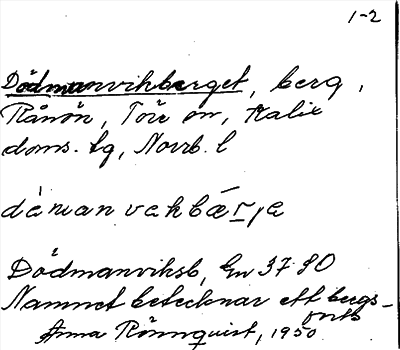 1-2
Dödmanvikberget, berg,
Rånön, Töre sn, Kalix
doms. lg, Norrb. l
dȧmanvekbærja
Dödmanviksb, Gu 37 80
Namnet betecknar ett bergs-
parti
Anna Rönnquist, 1950